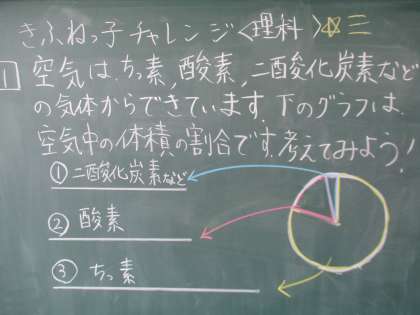 きふねっ子チャレンジ〈理科〉☆三
1 空気は、ちっ素,酸素,二酸化炭素など
の気体からできています。下のグラフは、
空気中の体積の割合です。考えてみよう!
① 二酸化炭素など
② 酸素
③ ちっ素